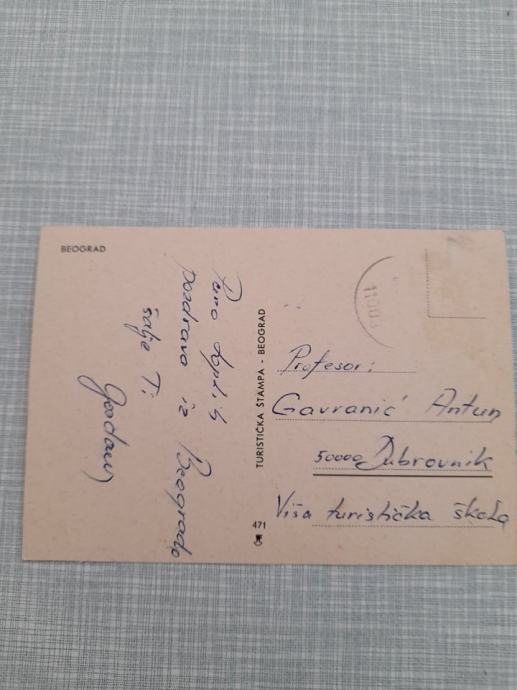 BEOGRAD
Puno toplih
pozdrava iz Beograda
šalje Ti
TURISTIČKA ŠTAMPA - BEOGRAD
471
Profesor:
Gavranić Antun
50000 Dubrovnik
Viša turistička škola